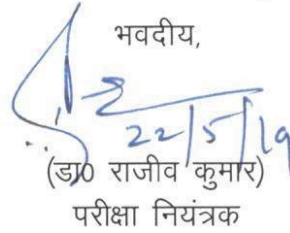 भवदीय,
22/5/19
(डा0 राजीव कुमार)
परीक्षा नियंत्रक